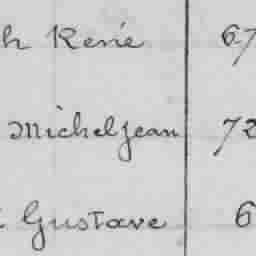 h René 67
Michel Jean 72
Gustave 6